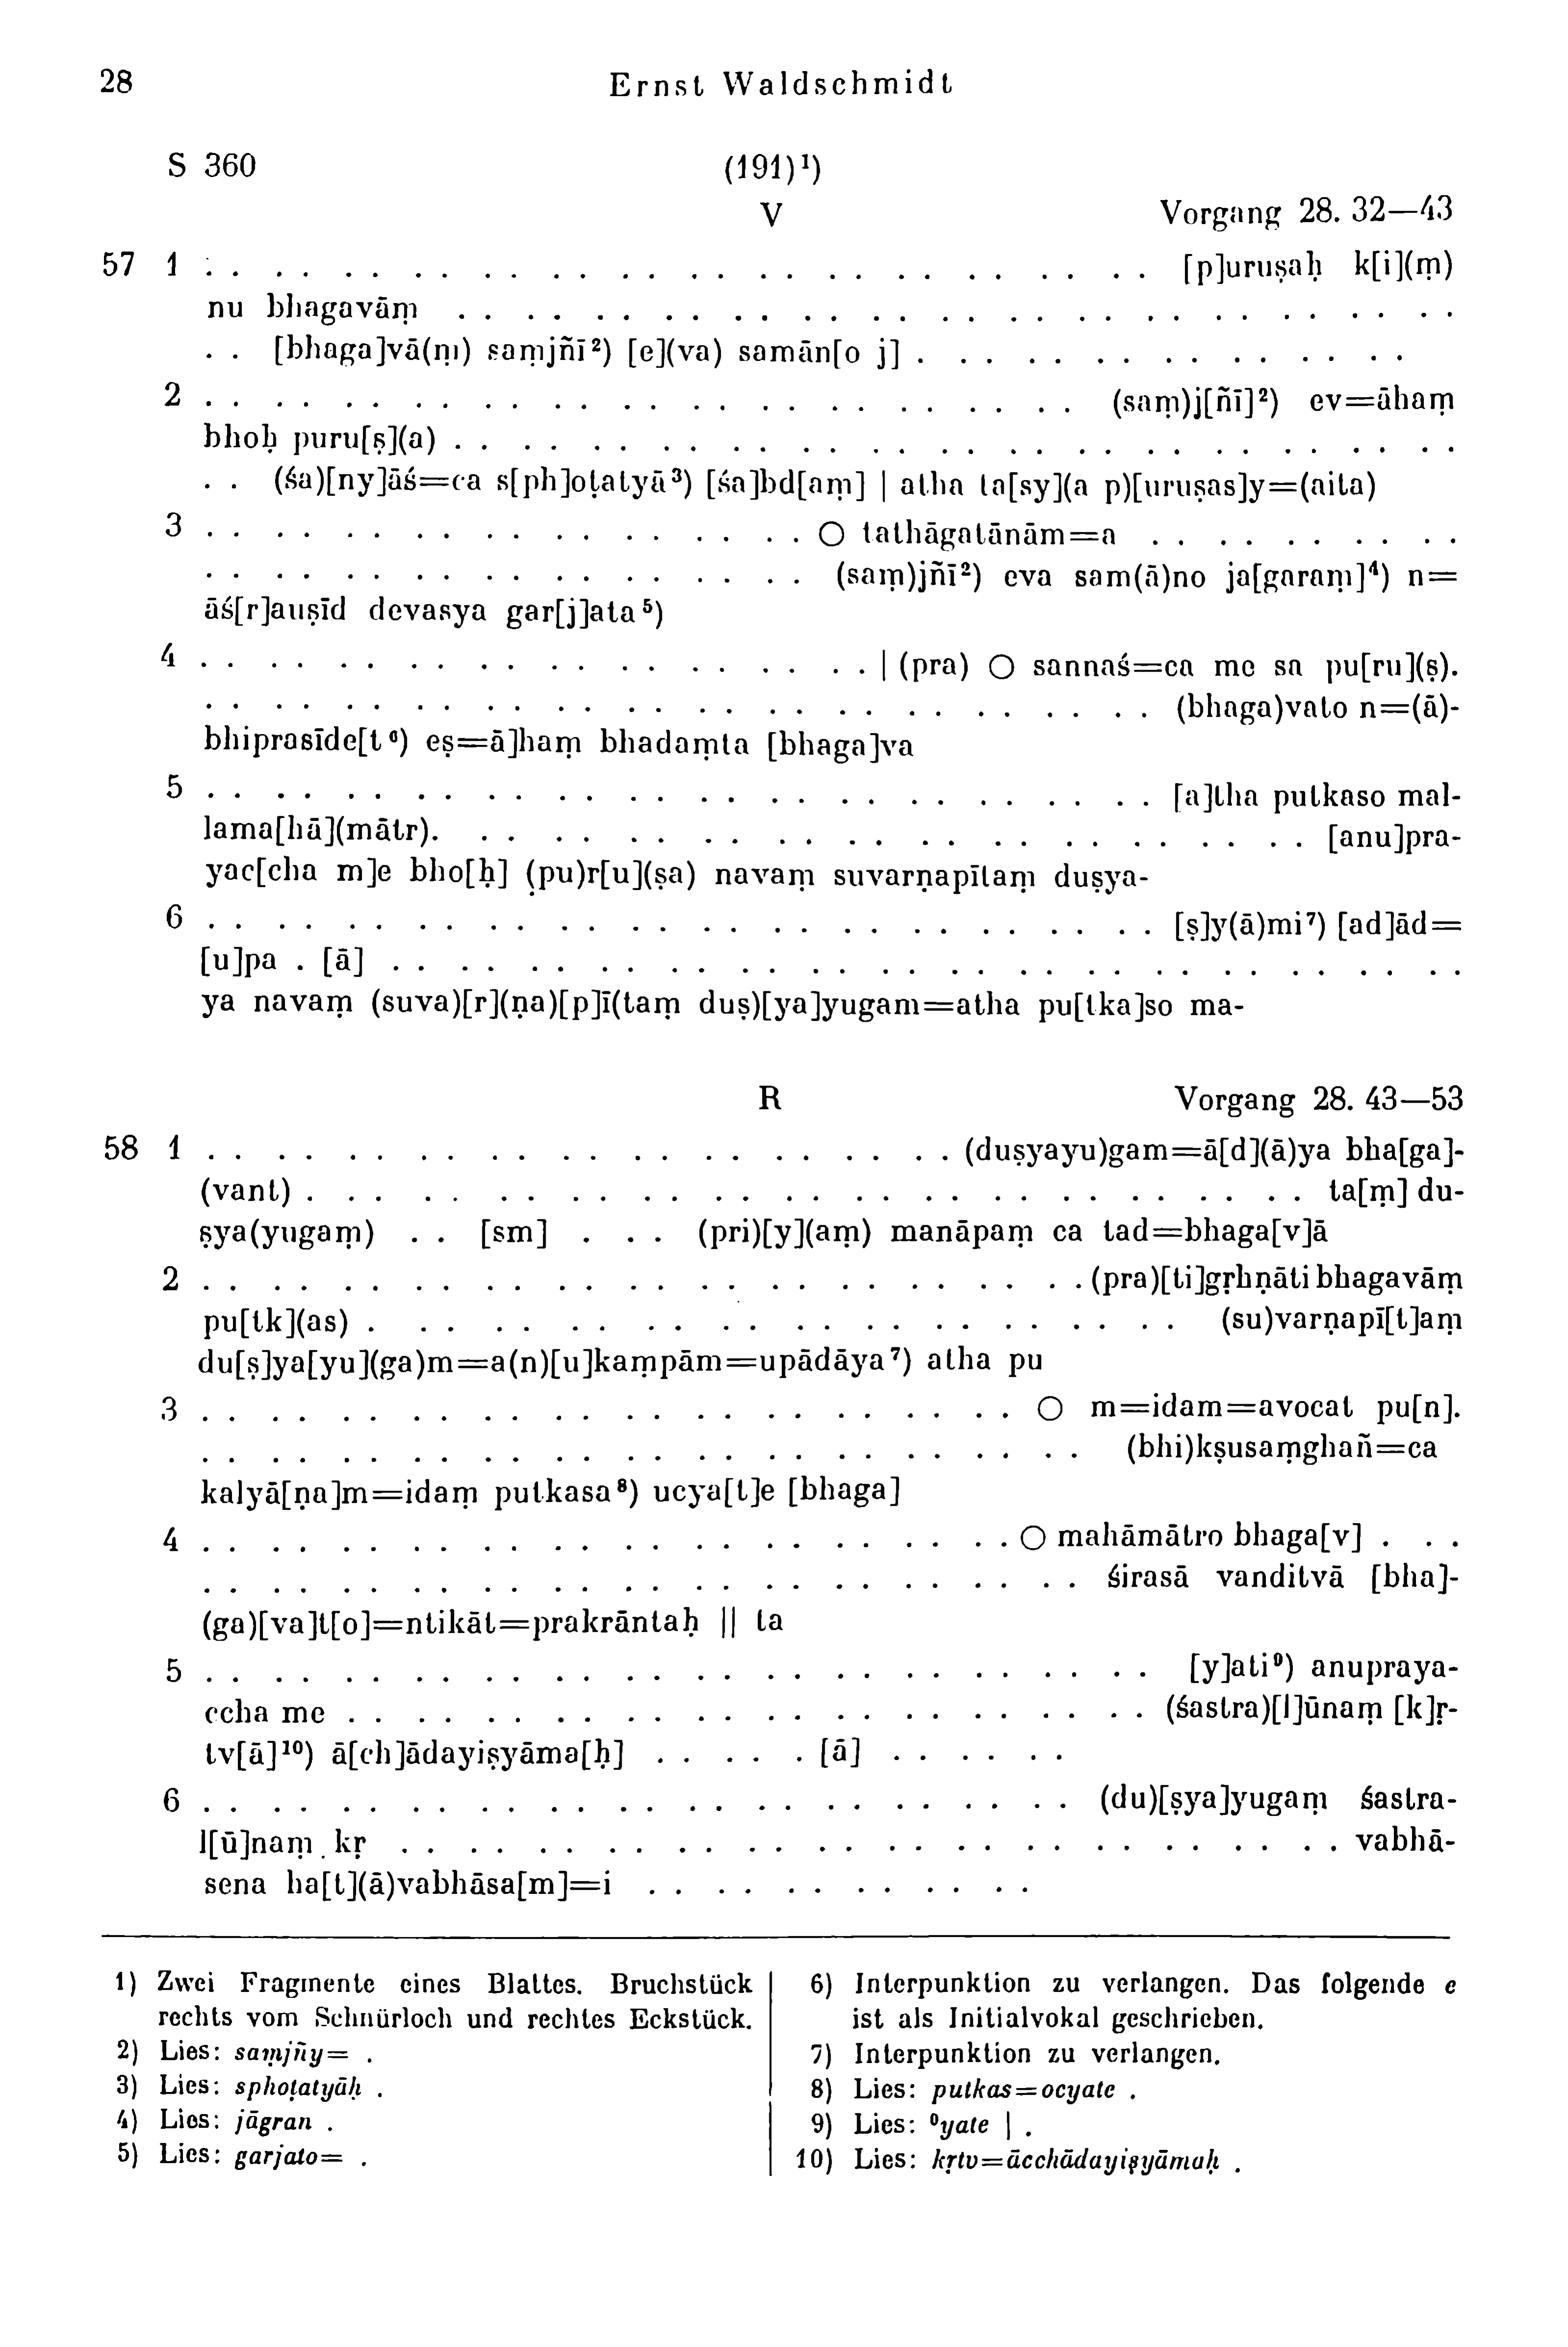 28 Ernst Waldschmidt
S 360 (191)¹)
V Vorgang 28. 32—43
57 1 . . . . . . . . . . . . . . . . . . . . . . . . . . . . [p]uruṣaḥ k[i](ṃ)
nu bhagavāṃ . . . . . . . . . . . . . . . . . . . . . . . . . . . . . .
. . [bhaga]vā(ṃ) saṃjñī²) [e](va) samān[o j] . . . . . . . . . . . . . . .
2 . . . . . . . . . . . . . . . . . . . . . . . . . . (saṃ)j[ñī]²) ev=āhaṃ
bhoḥ puru[ṣ](a) . . . . . . . . . . . . . . . . . . . . . . . . . . . . . .
. . (śa)[ny]āś=ca s[ph]oṭatyā³) [śa]bd[aṃ] | atha ta[sy](a p)[uruṣas]y=(aita)
3 . . . . . . . . . . . . . . . . . . ○ tathāgatānām=a . . . . . . . . . .
. . . . . . . . . . . . . . . . . . (saṃ)jñī²) eva sam(ā)no ja[garaṃ]⁴) n=
āś[r]auṣīd devasya gar[j]ata⁵)
4 . . . . . . . . . . . . . . . . . . . . | (pra) ○ sannaś=ca me sa pu[ru](ṣ).
. . . . . . . . . . . . . . . . . . . . . . . . . . . . (bhaga)vato n=(ā)-
bhiprasīde[t⁶) eṣ=ā]haṃ bhadaṃta [bhaga]va
5 . . . . . . . . . . . . . . . . . . . . . . . . . . . . [a]tha putkaso mal-
lama[hā](mātr). . . . . . . . . . . . . . . . . . . . . . . . . . [anu]pra-
yac[cha m]e bho[ḥ] (pu)r[u](ṣa) navaṃ suvarṇapītaṃ duṣya-
6 . . . . . . . . . . . . . . . . . . . . . . . . . . . . [ṣ]y(ā)mi⁷) [ad]ād=
[u]pa . [ā] . . . . . . . . . . . . . . . . . . . . . . . . . . . . . . .
ya navaṃ (suva)[r](ṇa)[p]ī(taṃ duṣ)[ya]yugam=atha pu[tka]so ma-
R Vorgang 28. 43—53
58 1 . . . . . . . . . . . . . . . . . . . . . . (duṣyayu)gam=ā[d](ā)ya bha[ga]-
(vant) . . . . . . . . . . . . . . . . . . . . . . . . . . . . . ta[ṃ] du-
ṣya(yugaṃ) . . [sm] . . . (pri)[y](aṃ) manāpaṃ ca tad=bhaga[v]ā
2 . . . . . . . . . . . . . . . . . . . . . . . . . . (pra)[ti]gṛhṇāti bhagavāṃ
pu[tk](as) . . . . . . . . . . . . . . . . . . . . . . . . (su)varṇapī[t]aṃ
du[ṣ]ya[yu](ga)m=a(n)[u]kaṃpām=upādāya⁷) atha pu
3 . . . . . . . . . . . . . . . . . . . . . . . . ○ m=idam=avocat pu[n].
. . . . . . . . . . . . . . . . . . . . . . . . . . (bhi)kṣusaṃghañ=ca
kalyā[ṇa]m=idaṃ putkasa⁸) ucya[t]e [bhaga]
4 . . . . . . . . . . . . . . . . . . . . . . . . ○ mahāmātro bhaga[v] . . .
. . . . . . . . . . . . . . . . . . . . . . . . . . śirasā vanditvā [bha]-
(ga)[va]t[o]=ntikāt=prakrāntaḥ || ta
5 . . . . . . . . . . . . . . . . . . . . . . . . . . . . [y]ati⁹) anupraya-
ccha me . . . . . . . . . . . . . . . . . . . . . . . . (śastra)[l]ūnaṃ [k]ṛ-
tv[ā]¹⁰) ā[ch]ādayiṣyāma[ḥ] . . . . . [ā] . . . . . .
6 . . . . . . . . . . . . . . . . . . . . . . . . . . (du)[ṣya]yugaṃ śastra-
l[ū]naṃ kṛ . . . . . . . . . . . . . . . . . . . . . . . . . . . . vabhā-
sena ha[t](ā)vabhāsa[m]=i . . . . . . . . . . . .
1) Zwei Fragmente eines Blattes. Bruchstück
rechts vom Schnürloch und rechtes Eckstück.
2) Lies: saṃjñy= .
3) Lies: sphoṭatyāḥ .
4) Lies: jāgran .
5) Lies: garjato= .
6) Interpunktion zu verlangen. Das folgende e
ist als Initialvokal geschrieben.
7) Interpunktion zu verlangen.
8) Lies: putkas=ocyate .
9) Lies: ⁰yate | .
10) Lies: kṛtv=ācchādayiṣyāmaḥ .